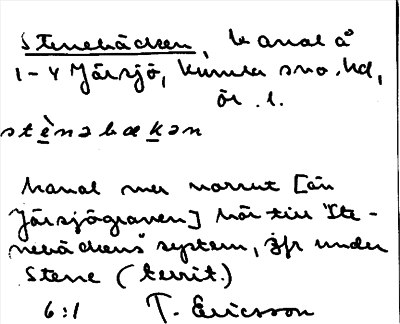 Stenebäcken, kanal å
1-4 Järsjö, Kumla sn o. hd,
ör. l.
stènəbækən
kanal mer norrut [än
Järsjögraven] hör till "Ste-
nebäckens" system, jfr under
Stene (territ.)
6:1 T. Ericsson